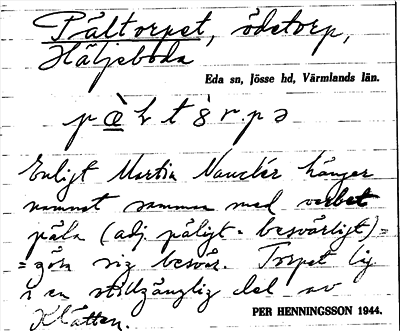 Pältorpet, ödetorp,
Häljeboda
Eda sn, Jösse hd, Värmlands län.
Enligt Martin Nauclér hänger
namnet samman med verbet
päla (adj. päligt = besvärligt) =
= göra sig besvär. Torpet lig.
i en otillgänglig del av
Klätten.
PER HENNINGSSON 1944.